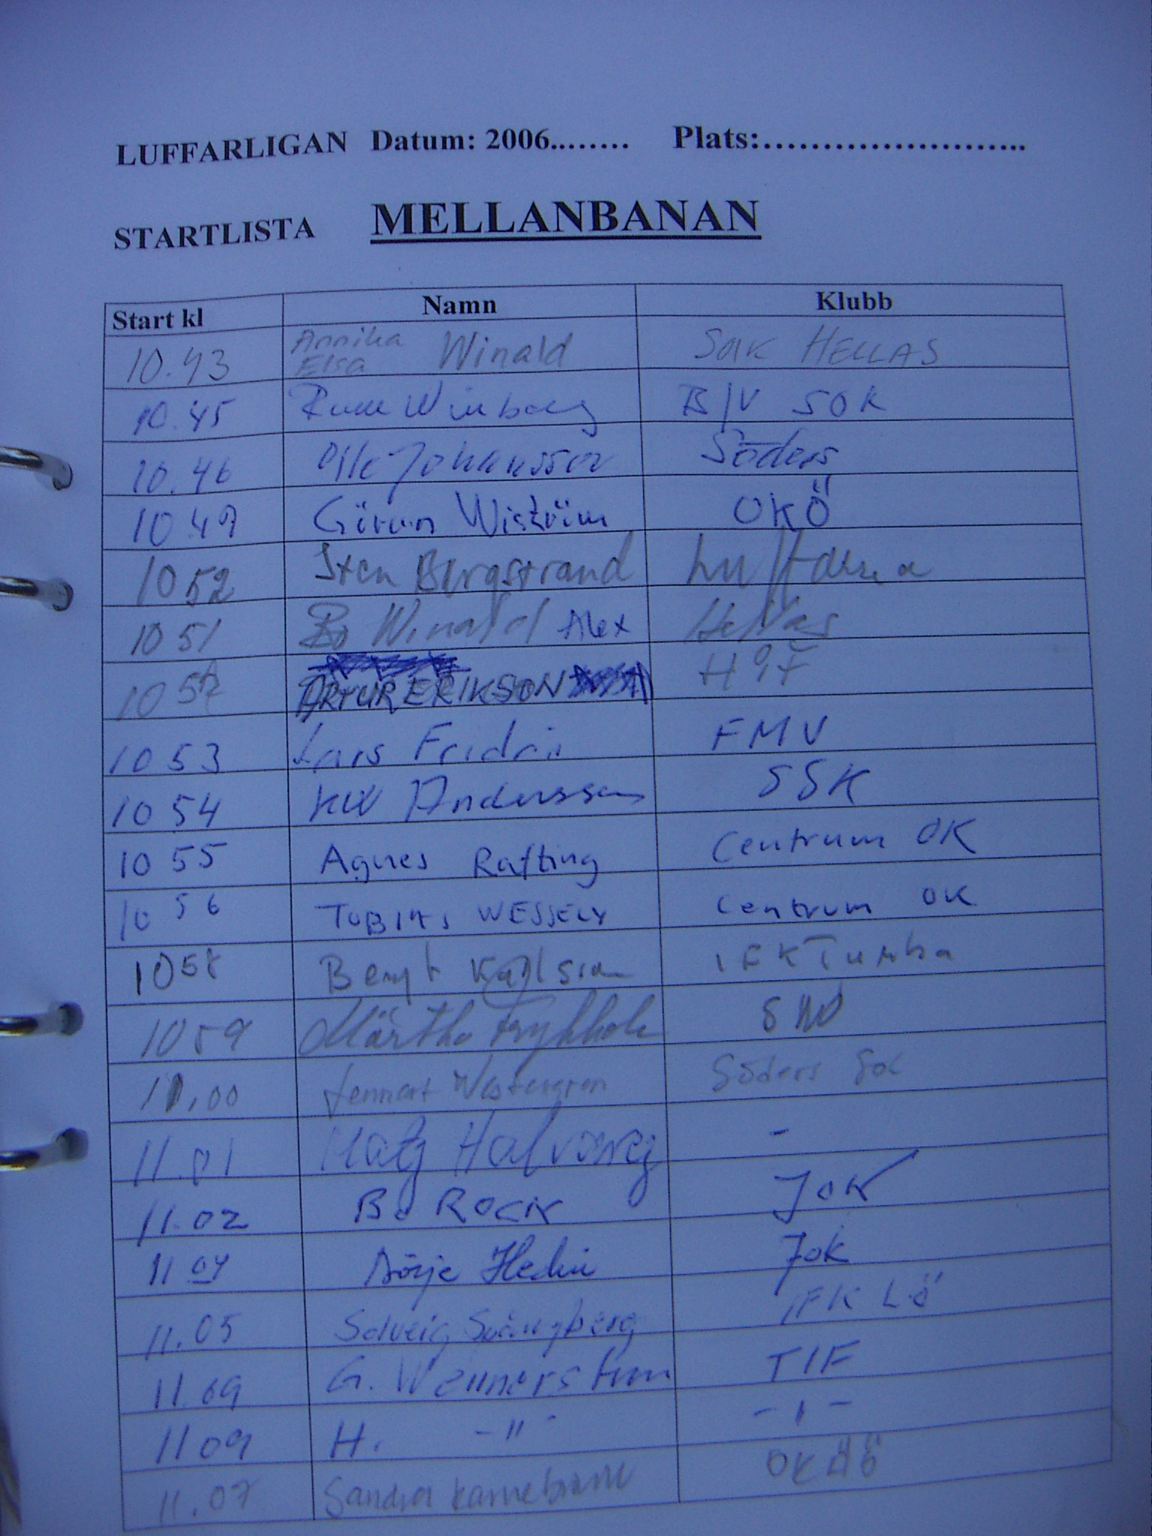 LUFFARLIGAN Datum: 2006........ Plats:.........................
STARTLISTA MELLANBANAN
Start kl Namn Klubb
10.43 Annika Elsa Winald SOK HELLAS
10.45 Rune Winberg B/V SOK
10.46 Olle Johansson Söders
10 49 Göran Wiström OKÖ
10 52 Sten Bergstrand
10 51 Bo Winald Alex Hellas
10 52 ARTUR ERIKSON
10 53 Lars FMV
10 54 KW Andersson SSK
10 55 Agnes Rafting Centrum OK
10 56 TOBIAS WESSELY Centrum OK
10 58 Bengt Karlsson IFK Tumba
10 59 Märtha Frykholm
11.00 Lennart Westergren Söders Sok
11.01 Halvorz -
11.02 Bo ROCK JOK
11 04 Börje Hedin Jok
11.05 Solveig Svängberg IFK Lö
11.09 G. Wennerstrum TIF
11 09 H. -"- -"-
11.07 Sandra OK ÄÖ